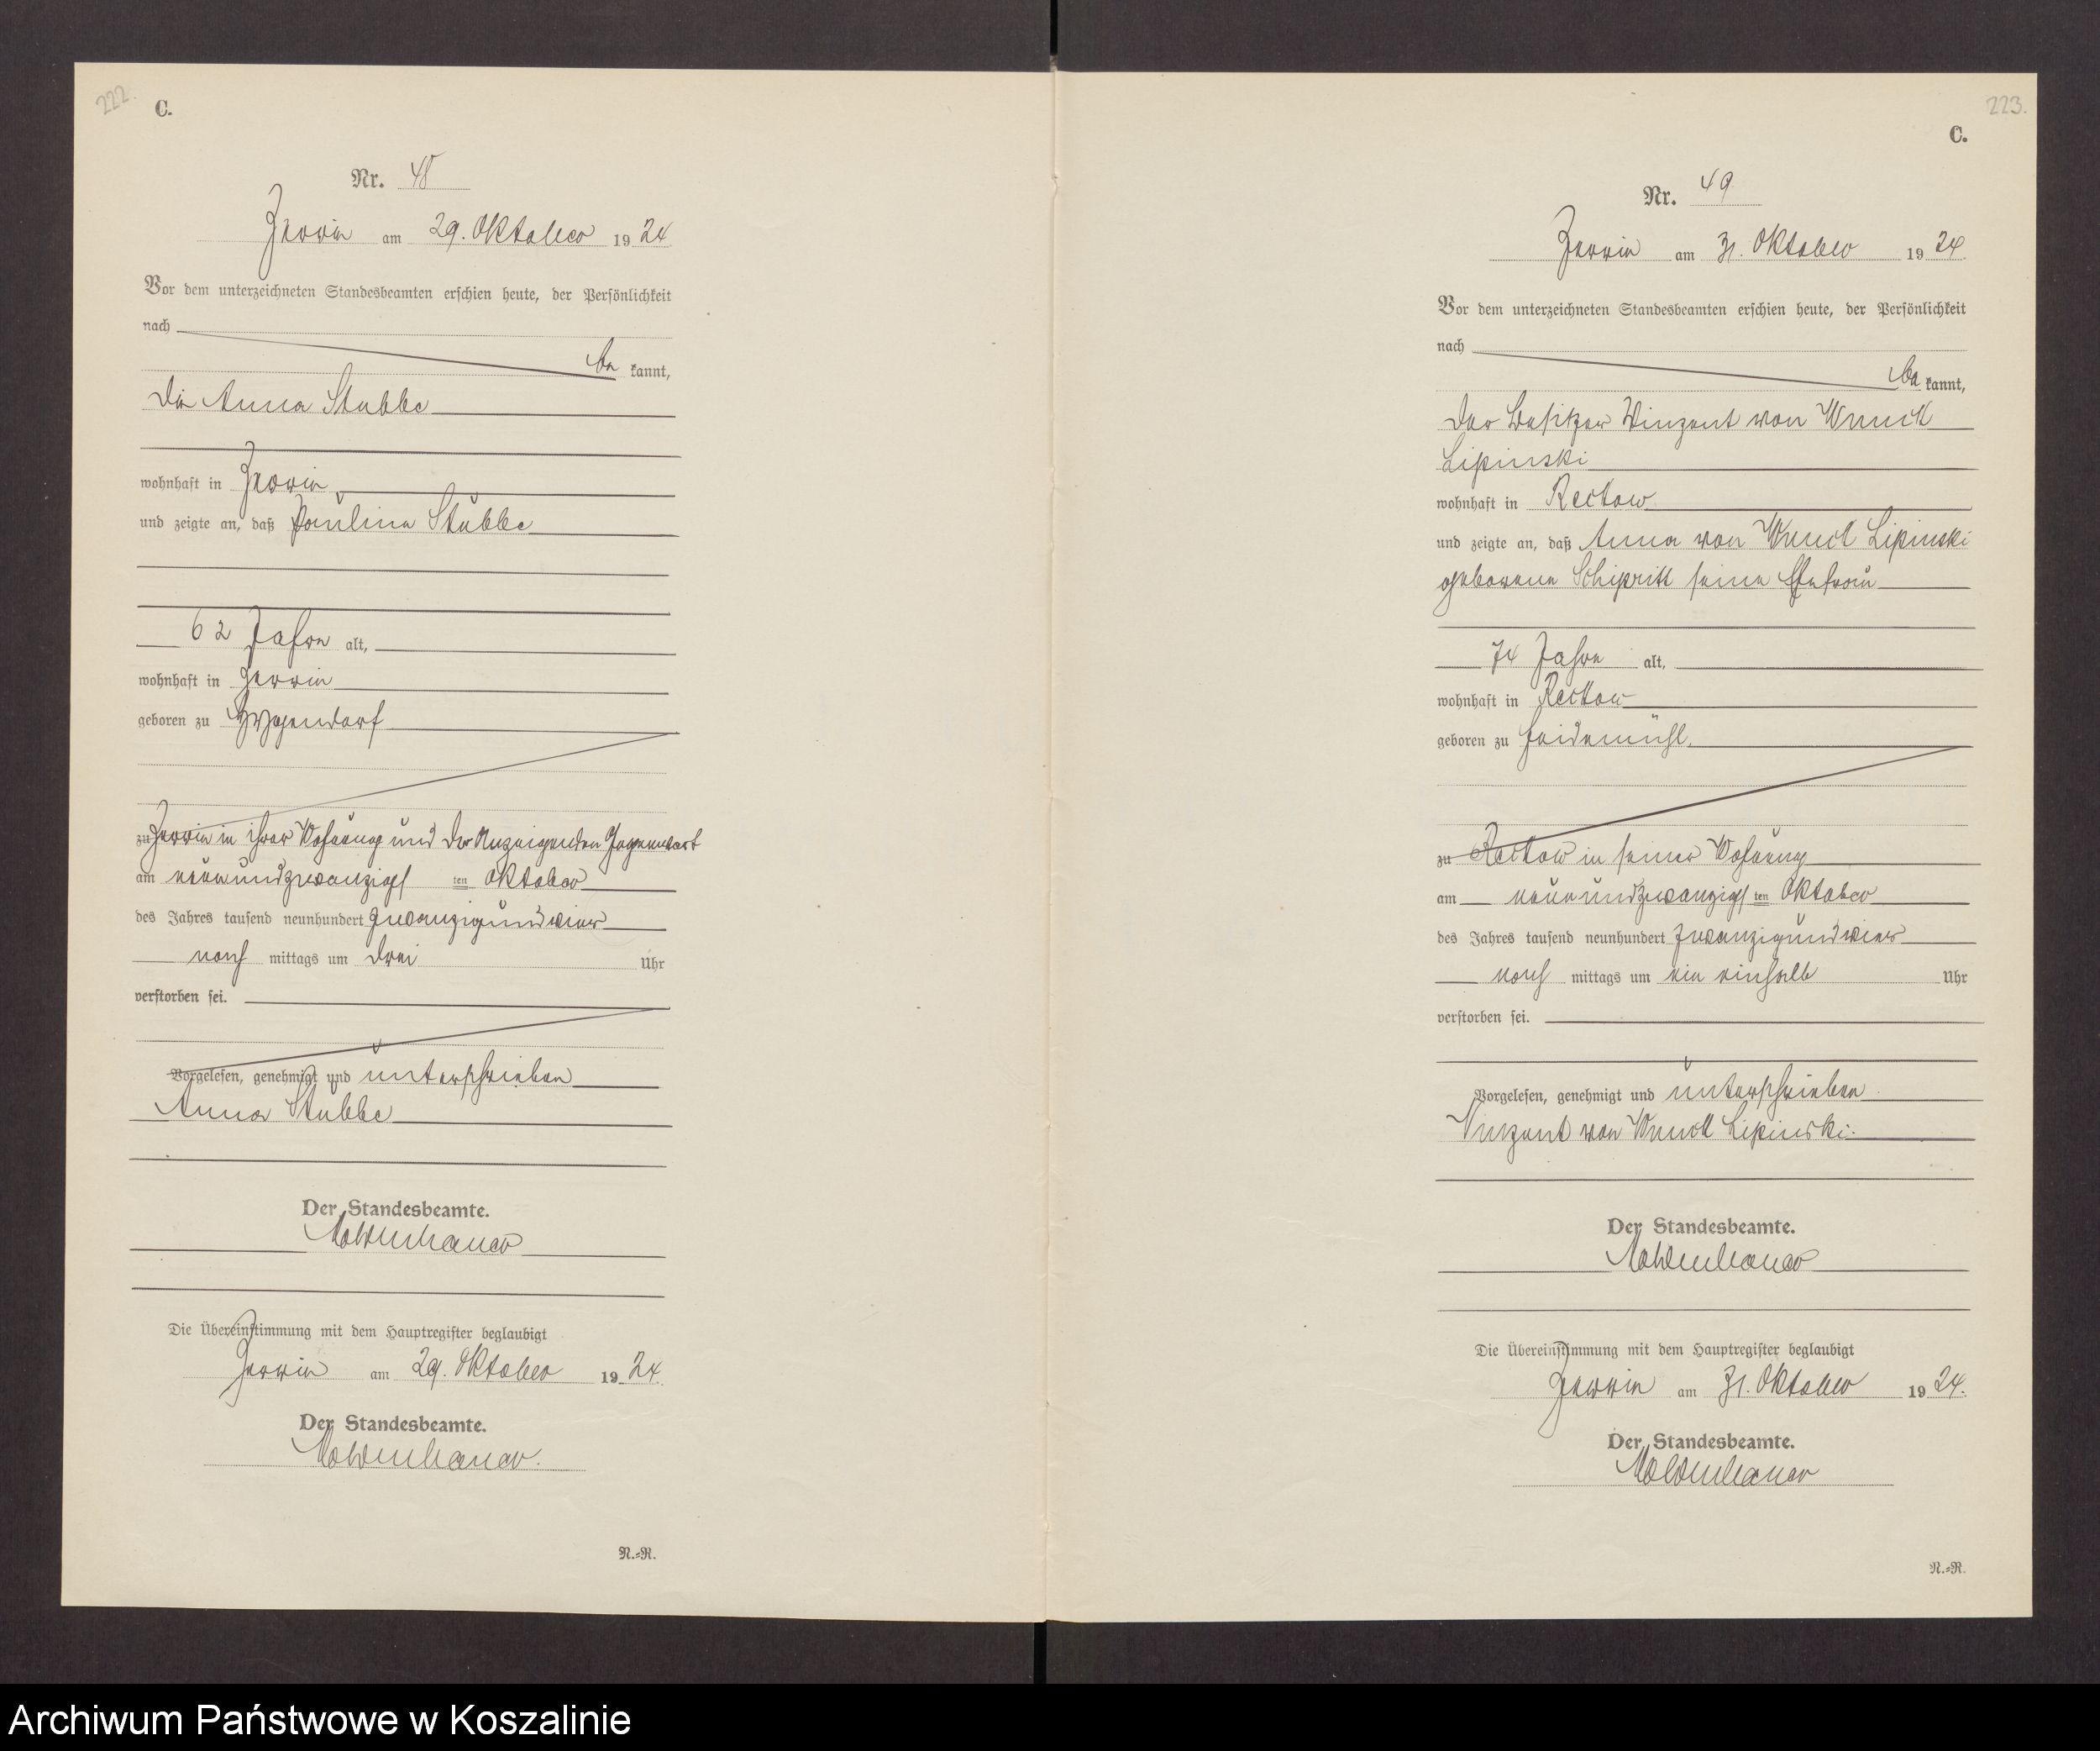 222.
C.
Nr. 48
Jerrin am 29. Oktober 1924
Vor dem unterzeichneten Standesbeamten erschien heute, der Persönlichkeit
nach
be kannt,
die Anna Stubbe
wohnhaft in Jerrin
und zeigte an, daß Paulina Stubbe
62 Jahre alt,
wohnhaft in Jerrin
geboren zu
zu Jerrin in ihrer Wohnung und der Anzeigenden Gegenwart
am neunundzwanzigs ten Oktober
des Jahres tausend neunhundert zwanzigundvier
nach mittags um drei Uhr
verstorben sei.
Vorgelesen, genehmigt und unterschrieben
Anna Stubbe
Der Standesbeamte.
Moldenhauer
Die Übereinstimmung mit dem Hauptregister beglaubigt
Jerrin am 29. Oktober 1924.
Der Standesbeamte.
Moldenhauer.
N.=R.
223.
C.
Nr. 49
Jerrin am 31. Oktober 1924
Vor dem unterzeichneten Standesbeamten erschien heute, der Persönlichkeit
nach
be kannt,
der Besitzer Vinzent von Wnuck
Lipinski
wohnhaft in Reckow
und zeigte an, daß Anna von Wnuck Lipinski
geborene seine Ehefrau
74 Jahre alt,
wohnhaft in Reckow
geboren zu Heidemühl.
zu Reckow in seiner Wohnung
am neunundzwanzigs ten Oktober
des Jahres tausend neunhundert zwanzigundvier
nach mittags um ein einhalb Uhr
verstorben sei.
Vorgelesen, genehmigt und unterschrieben.
Vinzent von Wnuck Lipinski.
Der Standesbeamte.
Moldenhauer
Die Übereinstimmung mit dem Hauptregister beglaubigt
Jerrin am 31. Oktober 1924.
Der Standesbeamte.
Moldenhauer
N.=R.
Archiwum Państwowe w Koszalinie